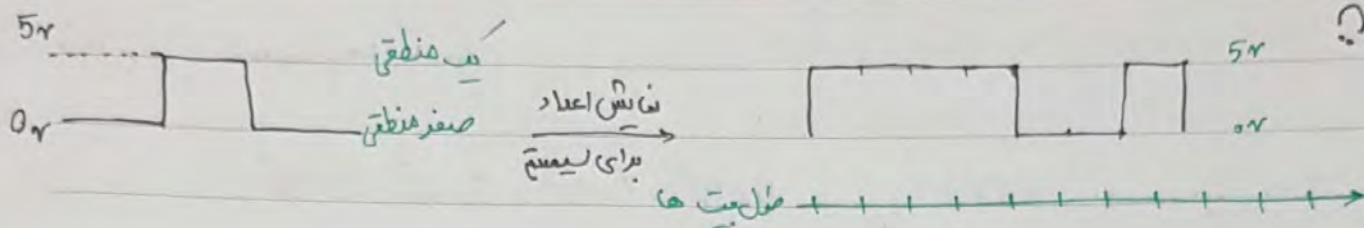 5v
یک منطقی
5v
؟
0v
صفر منطقی
نمایش اعداد
برای سیستم
0v
طول بیت ها